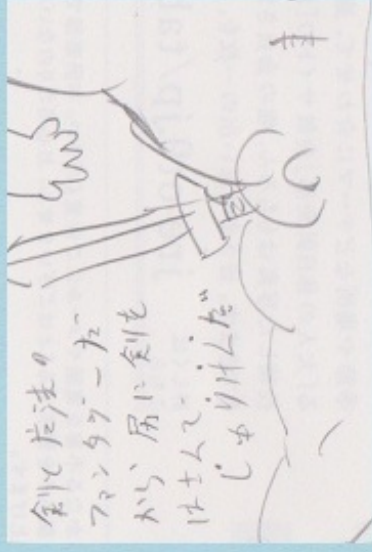 剣と魔法の
ファンタジーだ
から尻に剣を
はさんで
じゅりけんだ